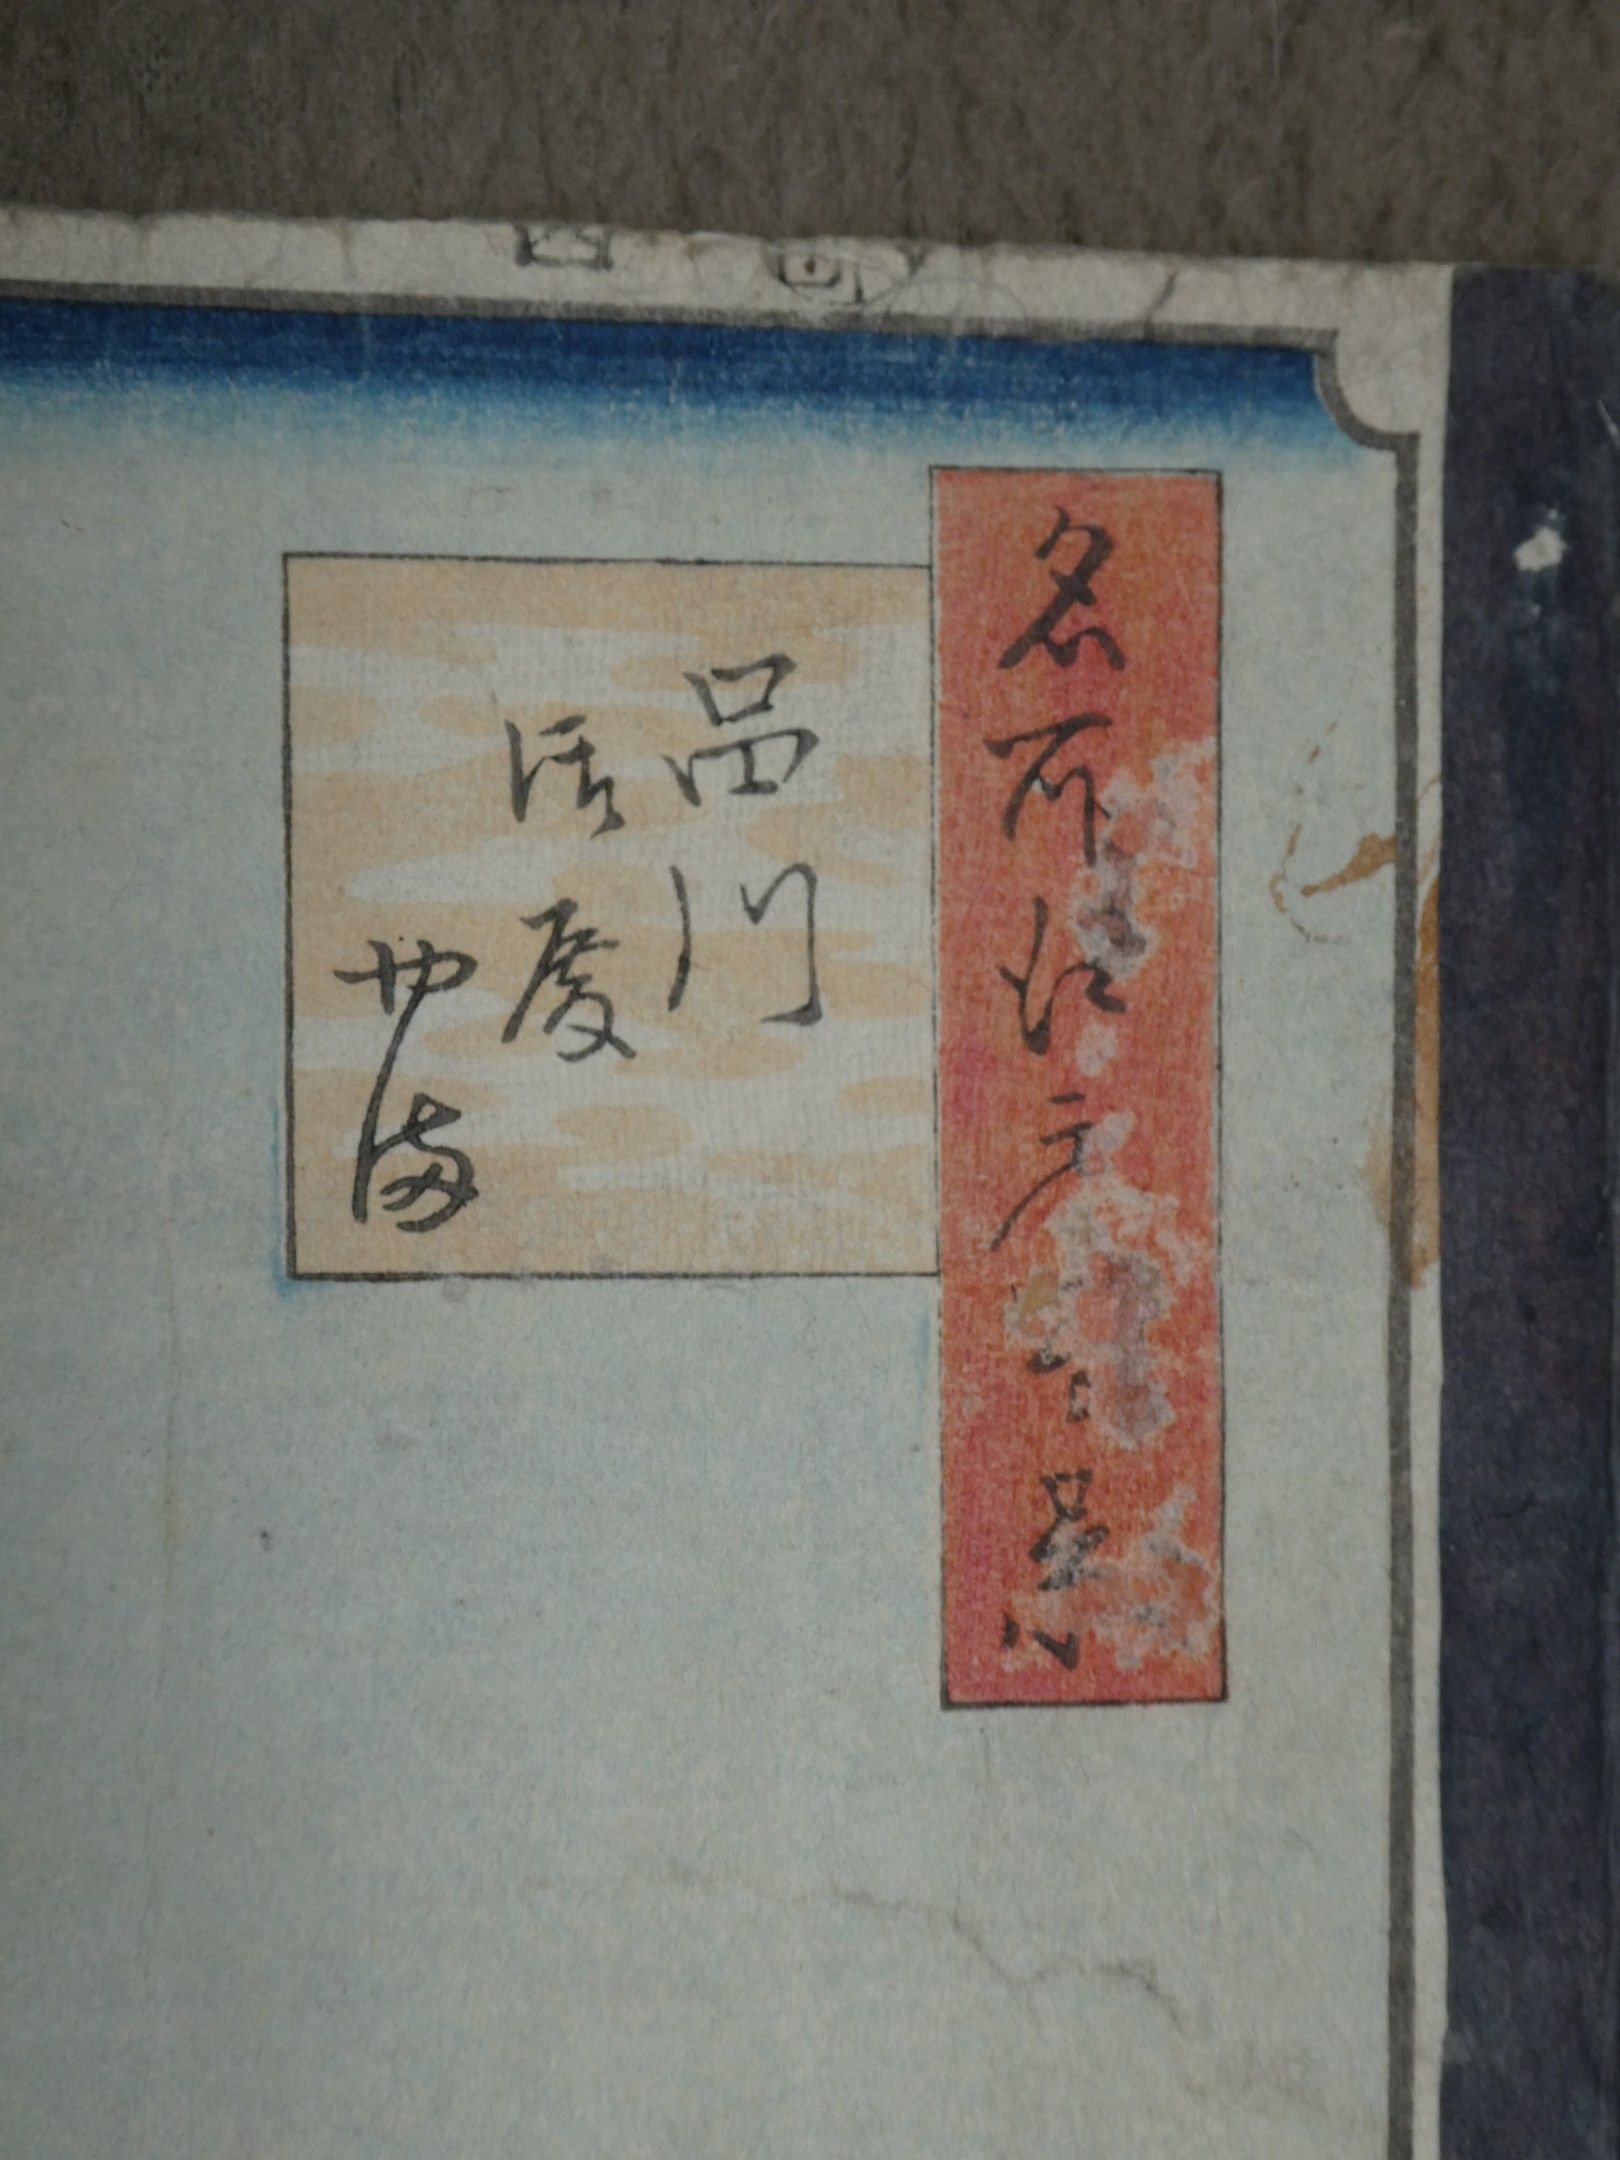 名所江戸百景
品川
御殿
やま